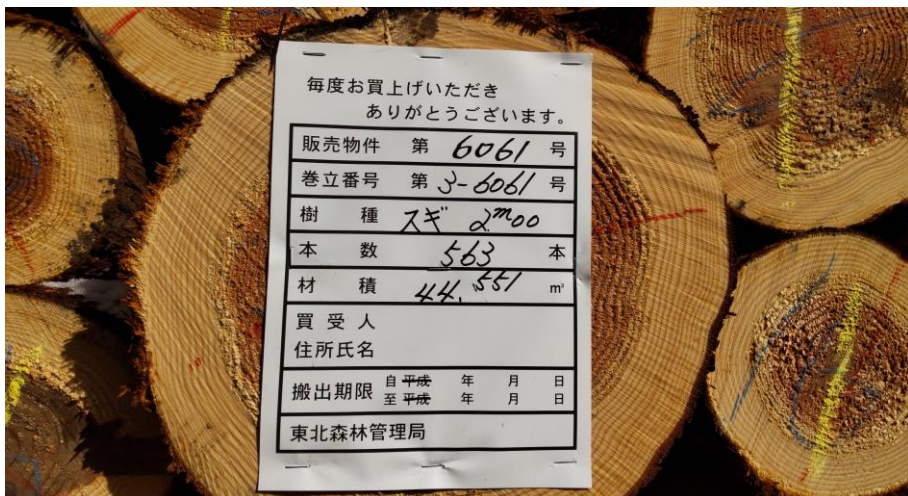 毎度お買上げいただき
ありがとうございます。
販売物件 第 6061 号
巻立番号 第 3-6061 号
樹種 スギ 2m00
本数 563 本
材積 44.551 m³
買受人
住所氏名
搬出期限 自 平成 年 月 日
至 平成 年 月 日
東北森林管理局